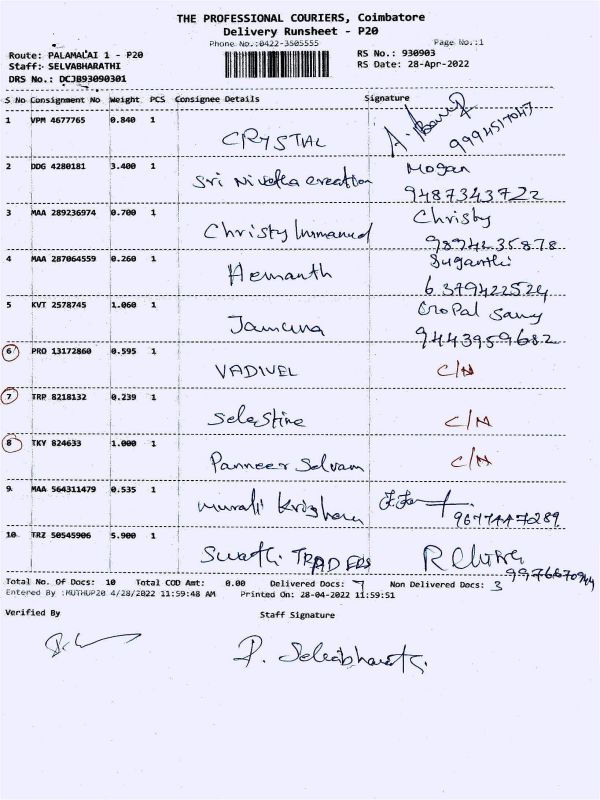 THE PROFESSIONAL COURIERS, Coimbatore
Delivery Runsheet - P20
Phone No.:0422-3505555
Page No.:1
Route: PALAMALAI 1 - P20
Staff: SELVABHARATHI
DRS No.: DCJB93090301
RS No.: 930903
RS Date: 28-Apr-2022
S No Consignment No Weight PCS Consignee Details Signature
1 VPM 4677765 0.840 1 CRYSTAL 9994517047
2 DDG 4280181 3.400 1 Sri Nivetha creation Mogan 9487343722
3 MAA 289236974 0.700 1 Christy Immanuel Christy 9894235878
4 MAA 287064559 0.260 1 Hemanth Suganthi 6379422524
5 KVT 2578745 1.060 1 Jamuna Gopal Samy 9443959682
6 PRO 13172860 0.595 1 VADIVEL C/N
7 TRP 8218132 0.239 1 Selastine C/N
8 TKY 824633 1.000 1 Panneer Selvam C/N
9 MAA 564311479 0.535 1 Murali Krishana 9677447289
10 TRZ 50545906 5.900 1 Swathi TRADERS 9976670944
Total No. Of Docs: 10 Total COD Amt: 0.00 Delivered Docs: 7 Non Delivered Docs: 3
Entered By :MUTHUP20 4/28/2022 11:59:48 AM Printed On: 28-04-2022 11:59:51
Verified By
Staff Signature
P. Selvabharathi